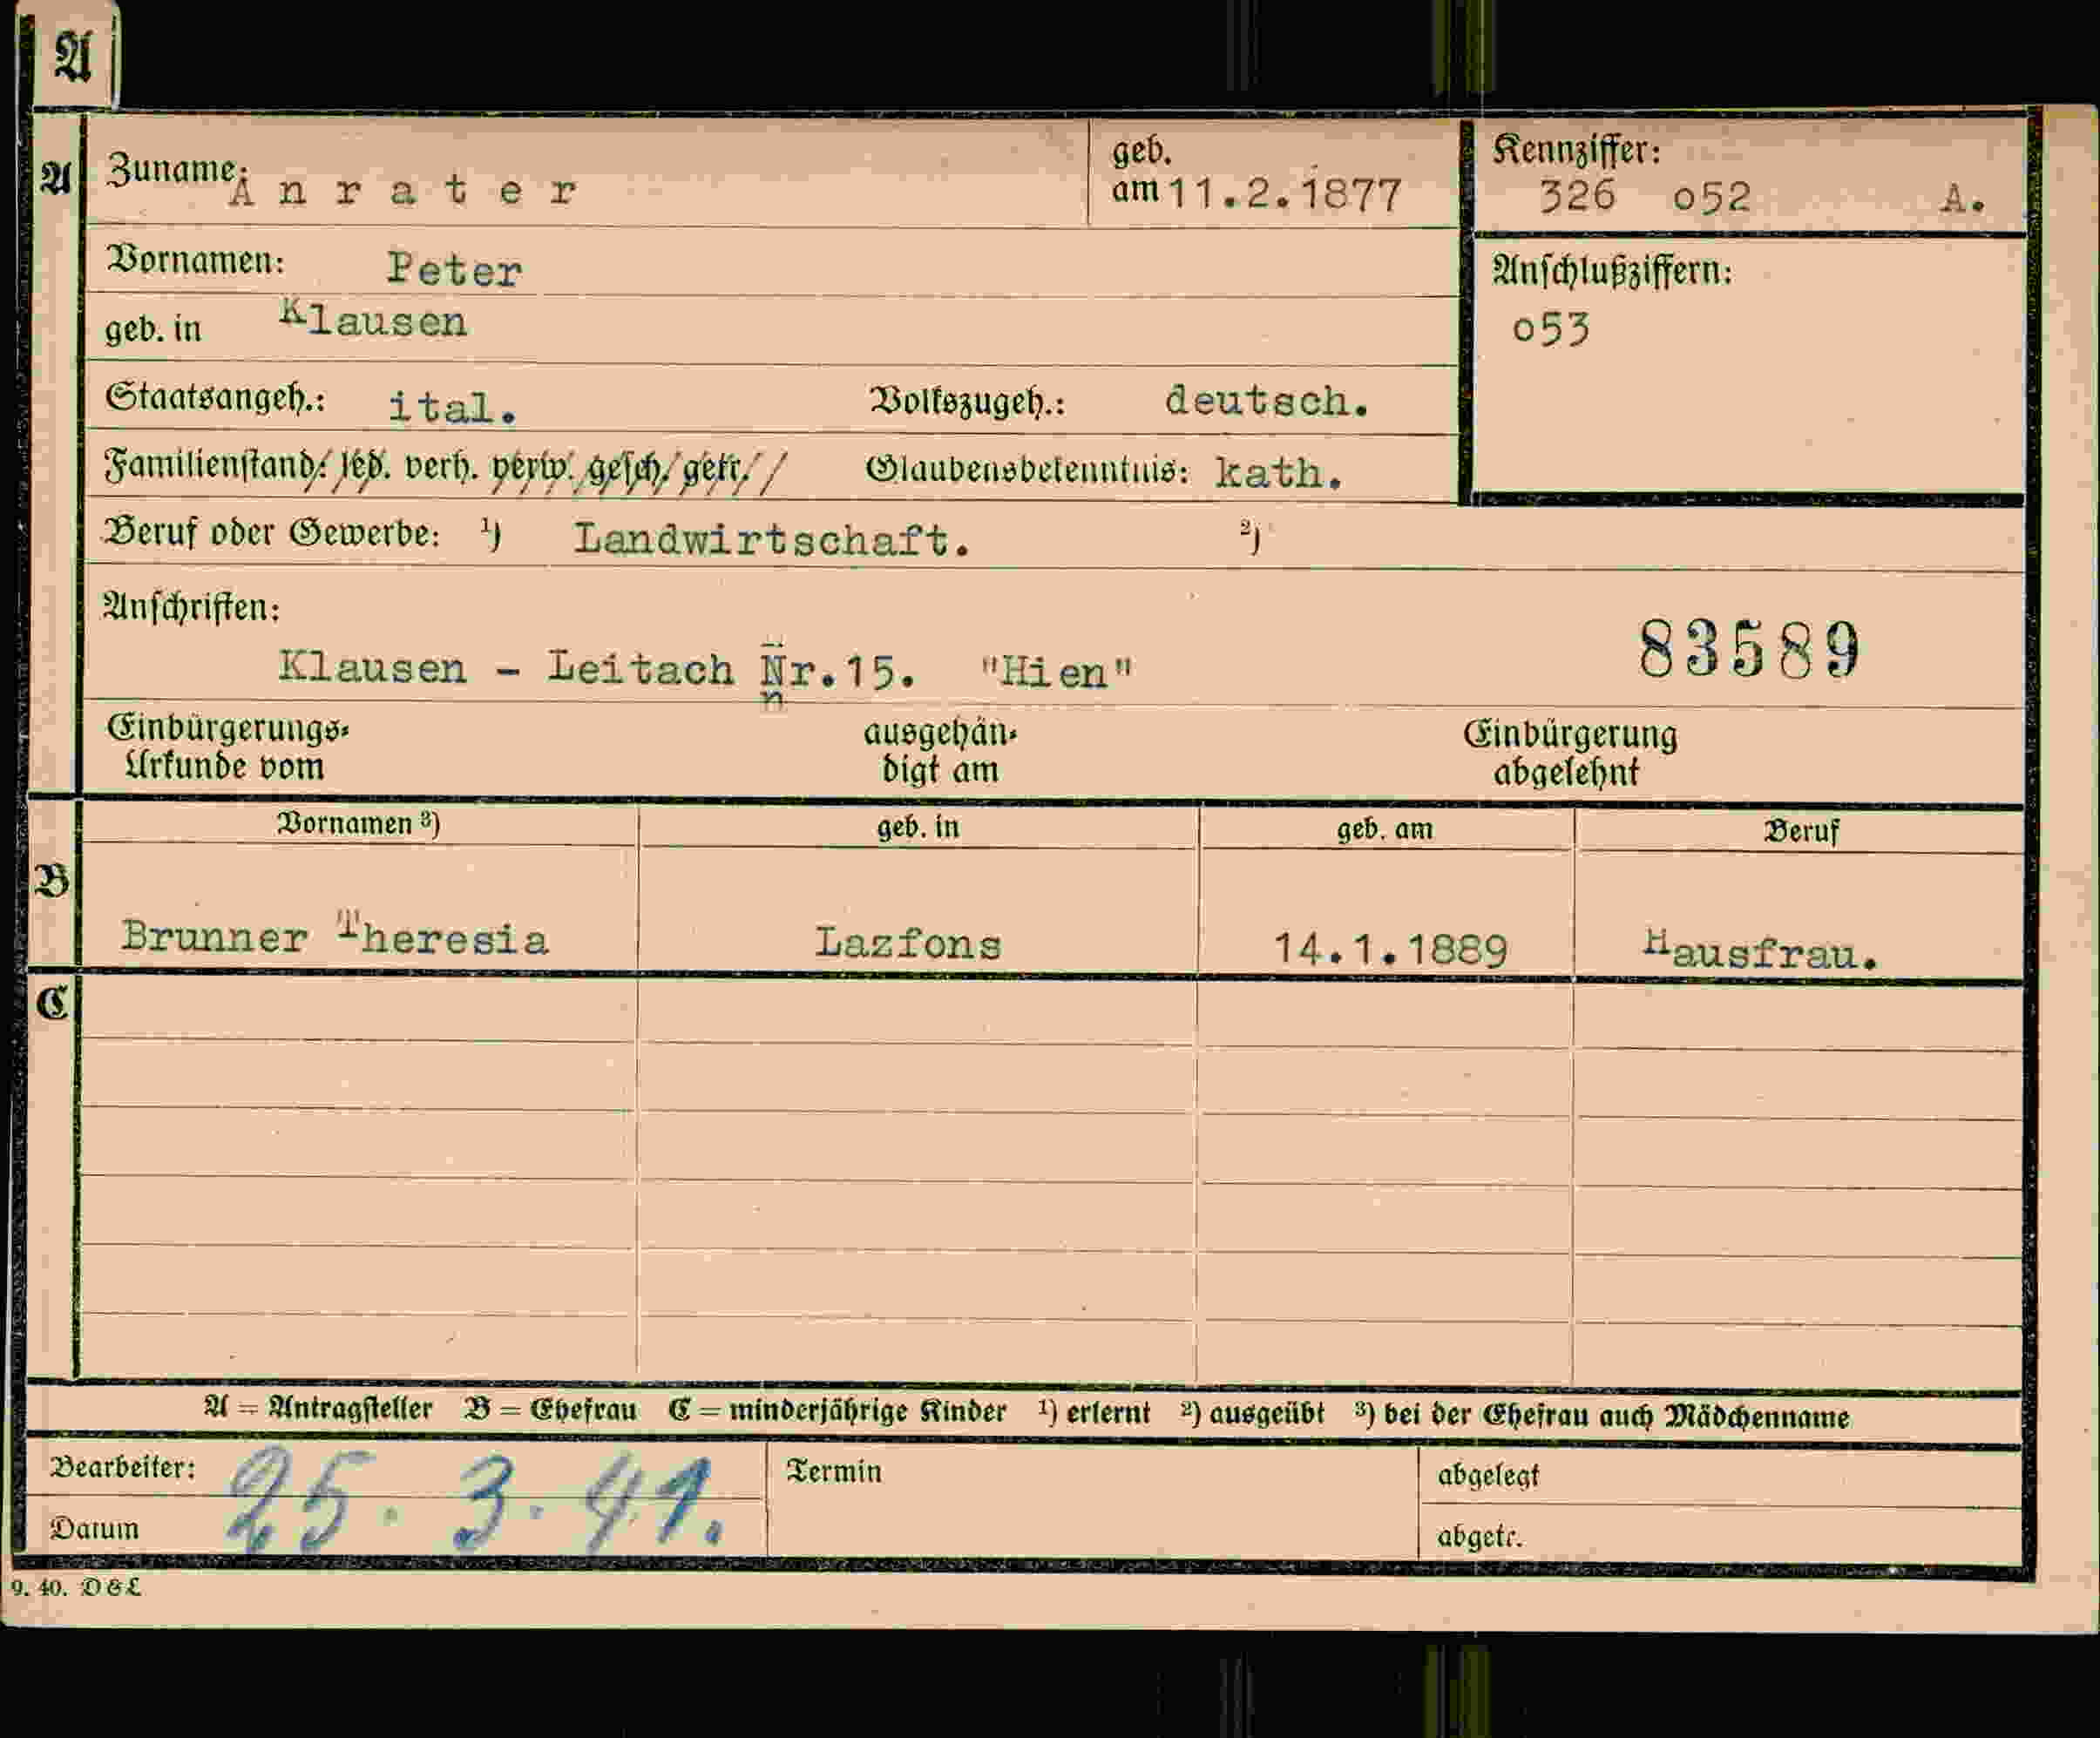 A
A Zuname: Anrater geb. am 11.2.1877 Kennziffer: 326 o52 A.
Vornamen: Peter Anschlußziffern:
geb. in Klausen o53
Staatsangeh.: ital. Volkszugeh.: deutsch.
Familienstand: led. verh. verw. gesch. getr. Glaubensbekenntnis: kath.
Beruf oder Gewerbe: ¹) Landwirtschaft. ²)
Anschriften:
Klausen - Leitach Nr.15. "Hien" 83589
Einbürgerungs- ausgehän- Einbürgerung
Urkunde vom digt am abgelehnt
Vornamen ³) geb. in geb. am Beruf
B
Brunner Theresia Lazfons 14.1.1889 Hausfrau.
C
A = Antragsteller B = Ehefrau C = minderjährige Kinder ¹) erlernt ²) ausgeübt ³) bei der Ehefrau auch Mädchenname
Bearbeiter: 25.3.41. Termin abgelegt
Datum abgetr.
9. 40. D&L